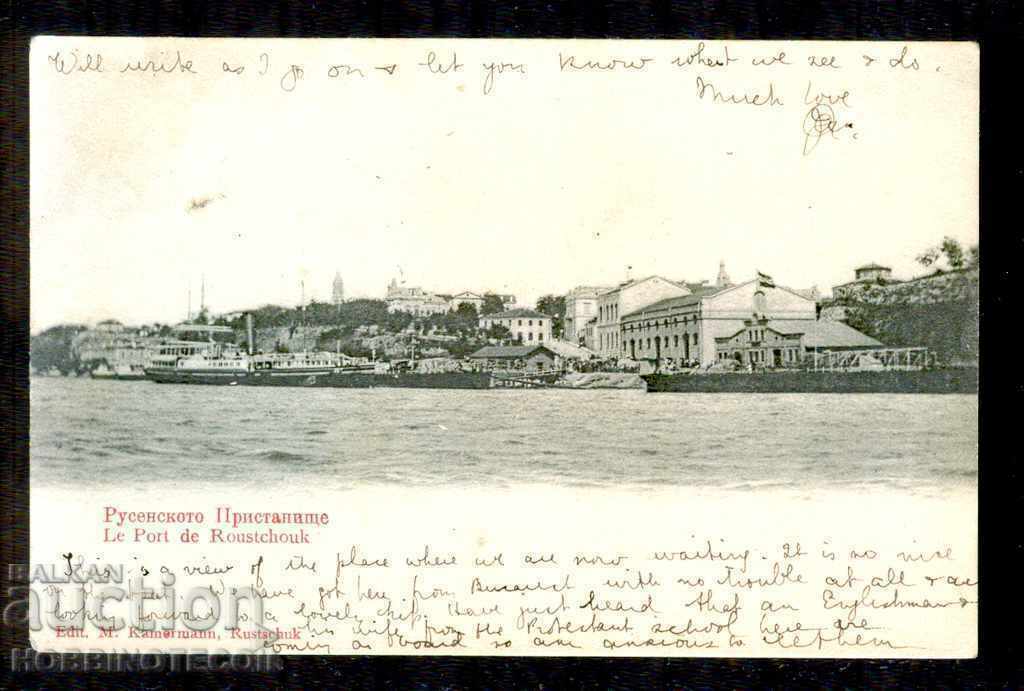 Will write as I go on & let you know what we see & do.
Much love
Русенското Пристанище
Le Port de Roustchouk
This is a view of the place where we are now waiting. It is so nice
on the boat. We have got here from Bucarest with no trouble at all & are
looking forward to a lovely trip. Have just heard that an Englishman &
his wife from the Protestant school here are
coming on board so am anxious to see them
Edit. M. Kamermann, Rustschuk
BALKAN
auction
HOBBINOTECO